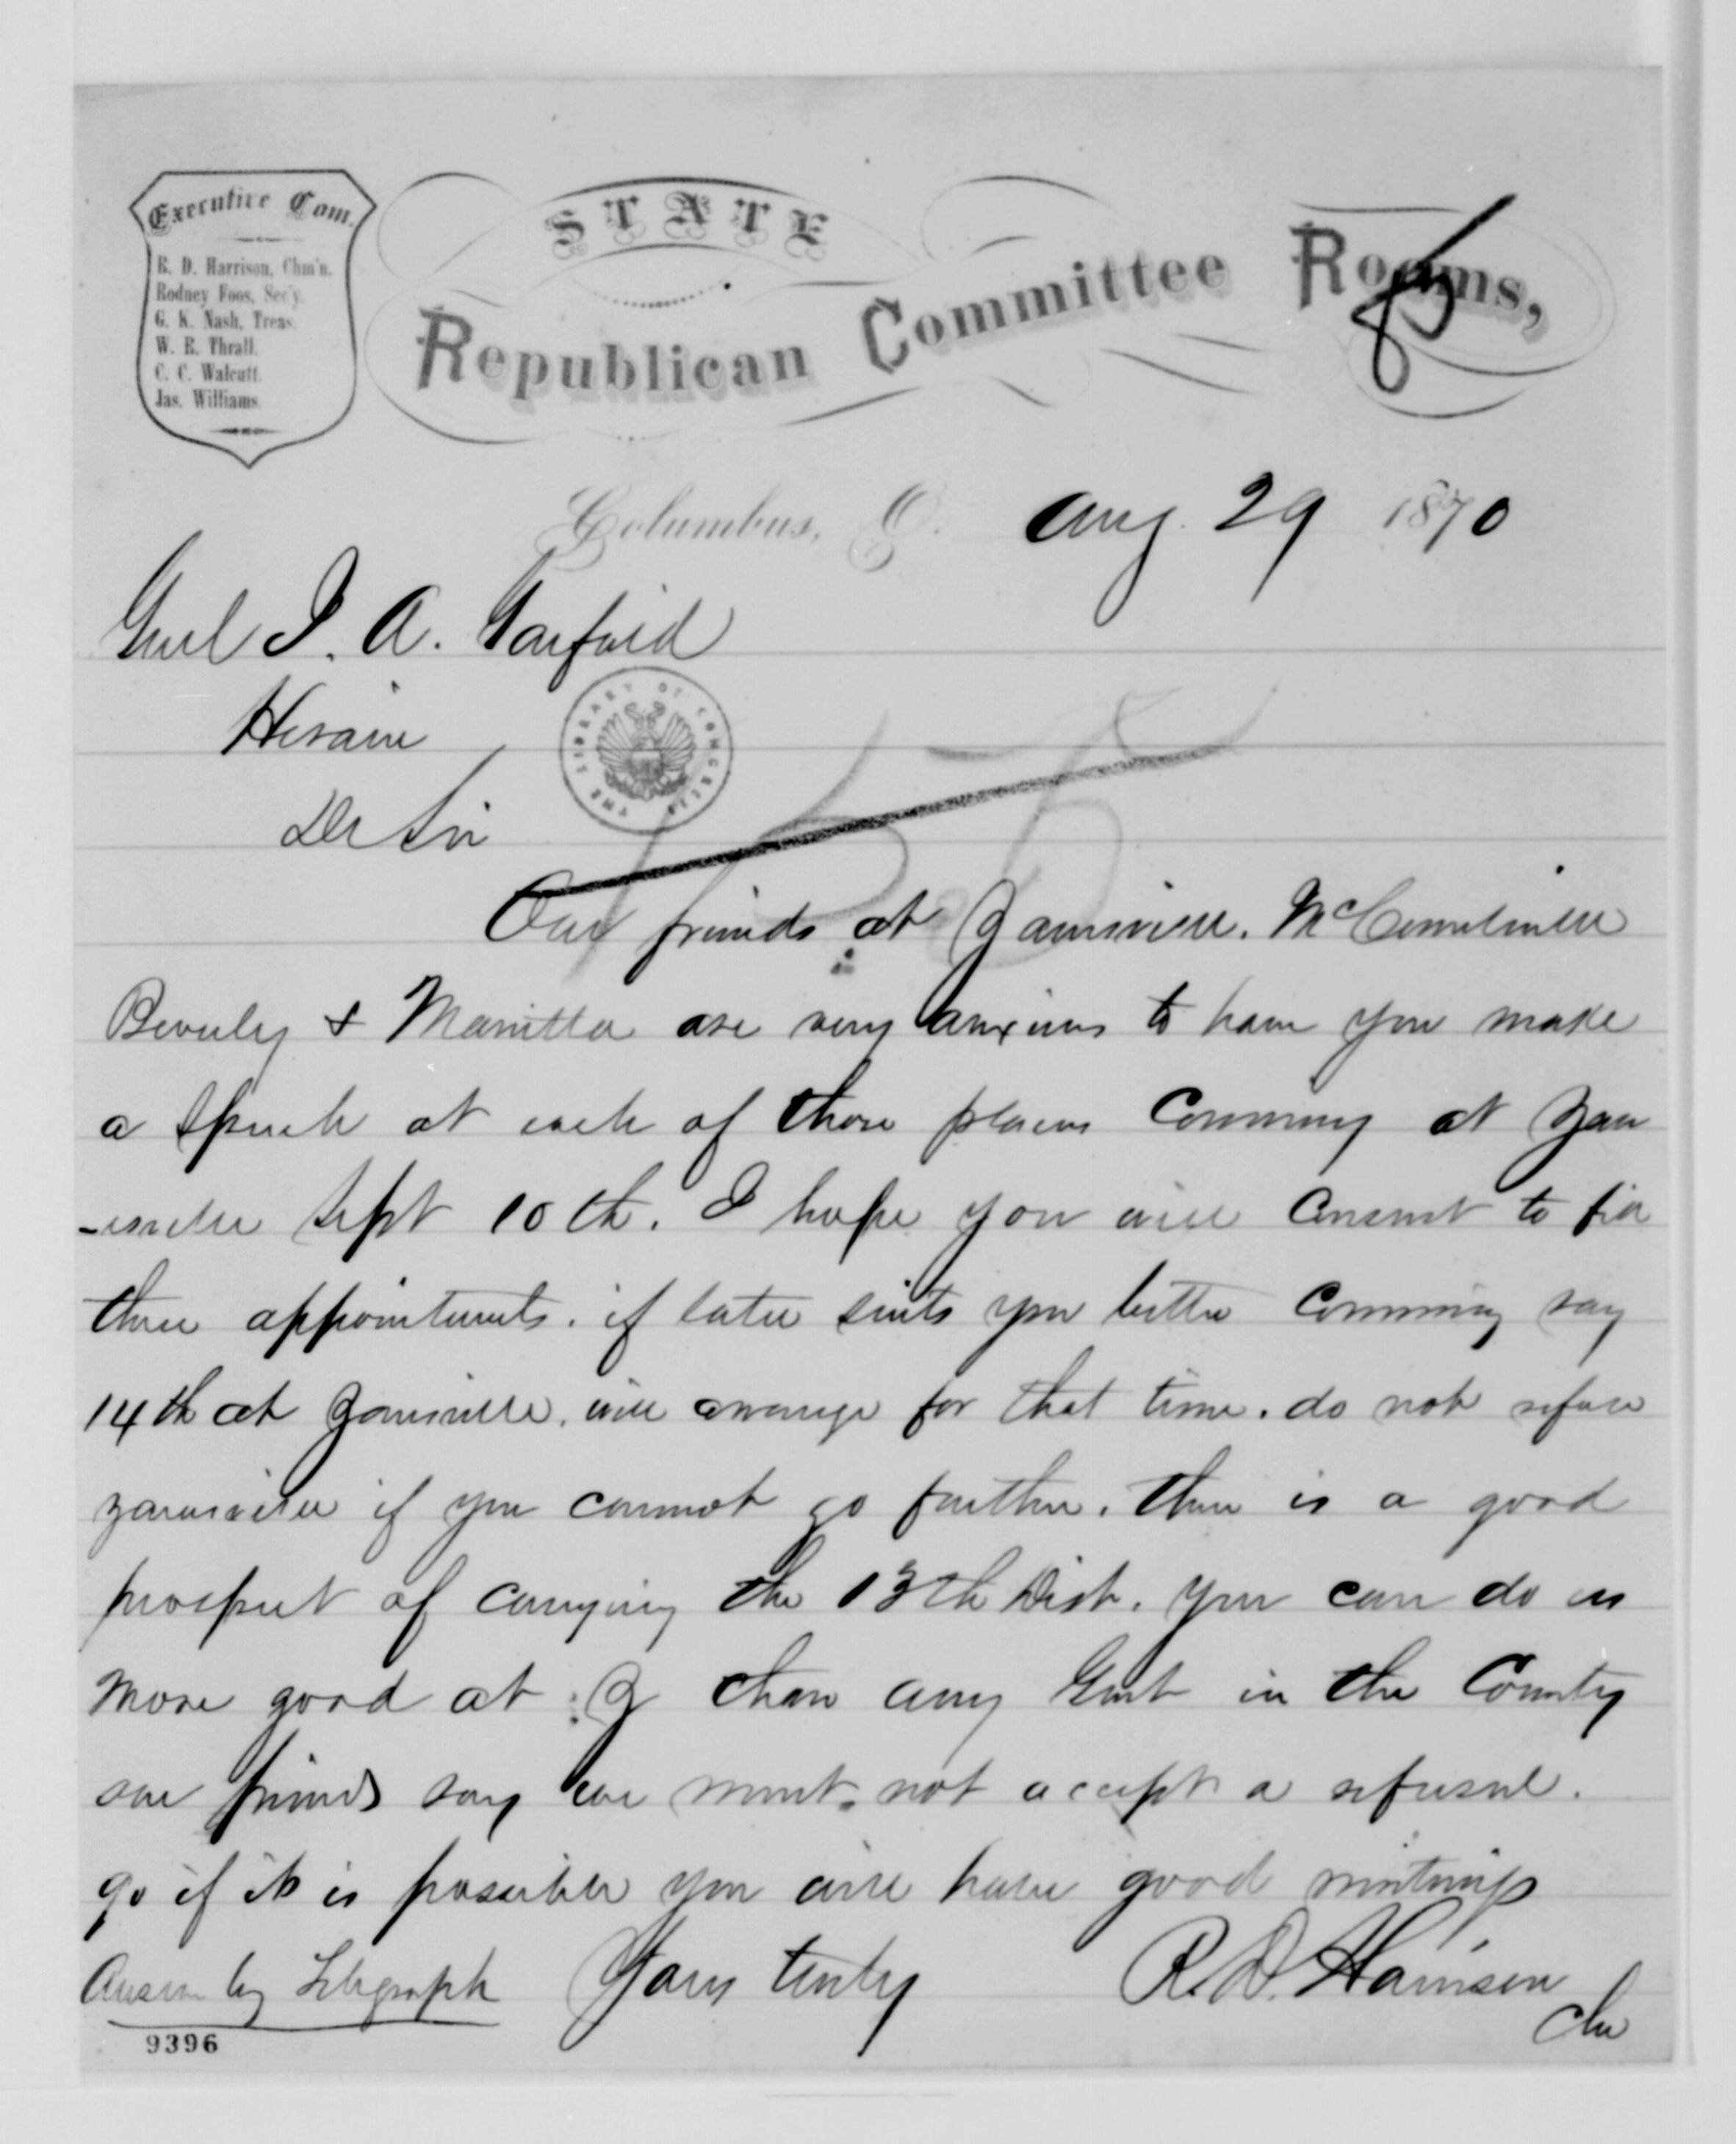 Executive Com.
R. D. Harrison, Chm'n.
Rodney Foos, Sec'y.
G. K. Nash, Treas.
W. R. Thrall.
C. C. Walcutt.
Jas. Williams.
STATE
Republican Committee Rooms,
Columbus, O. Aug. 29 1870
Genl J. A. Garfield
Hiram
THE LIBRARY OF CONGRESS
Dr Sir
Our friends at Zanesville. McConnelsville
Beverly & Marietta are very anxious to have you make
a speech at each of those places Comming at Zan
-esville Sept 10th. I hope you will Consent to fill
these appointments. if later suits you better Comming say
14th at Zanesville. will arrange for that time. do not refuse
Zanesville if you cannot go further. there is a good
prospect of carrying the 13th Dist. you can do us
more good at Z than any Gent in the County
our friends say we must not accept a refusal.
go if it is possible you will have good meetings
Answer by Telegraph Yours truly R. D. Harrison
Chm
9396